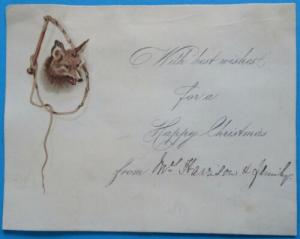 With best wishes
for a
Happy Christmas
from Mrs Harrison & family